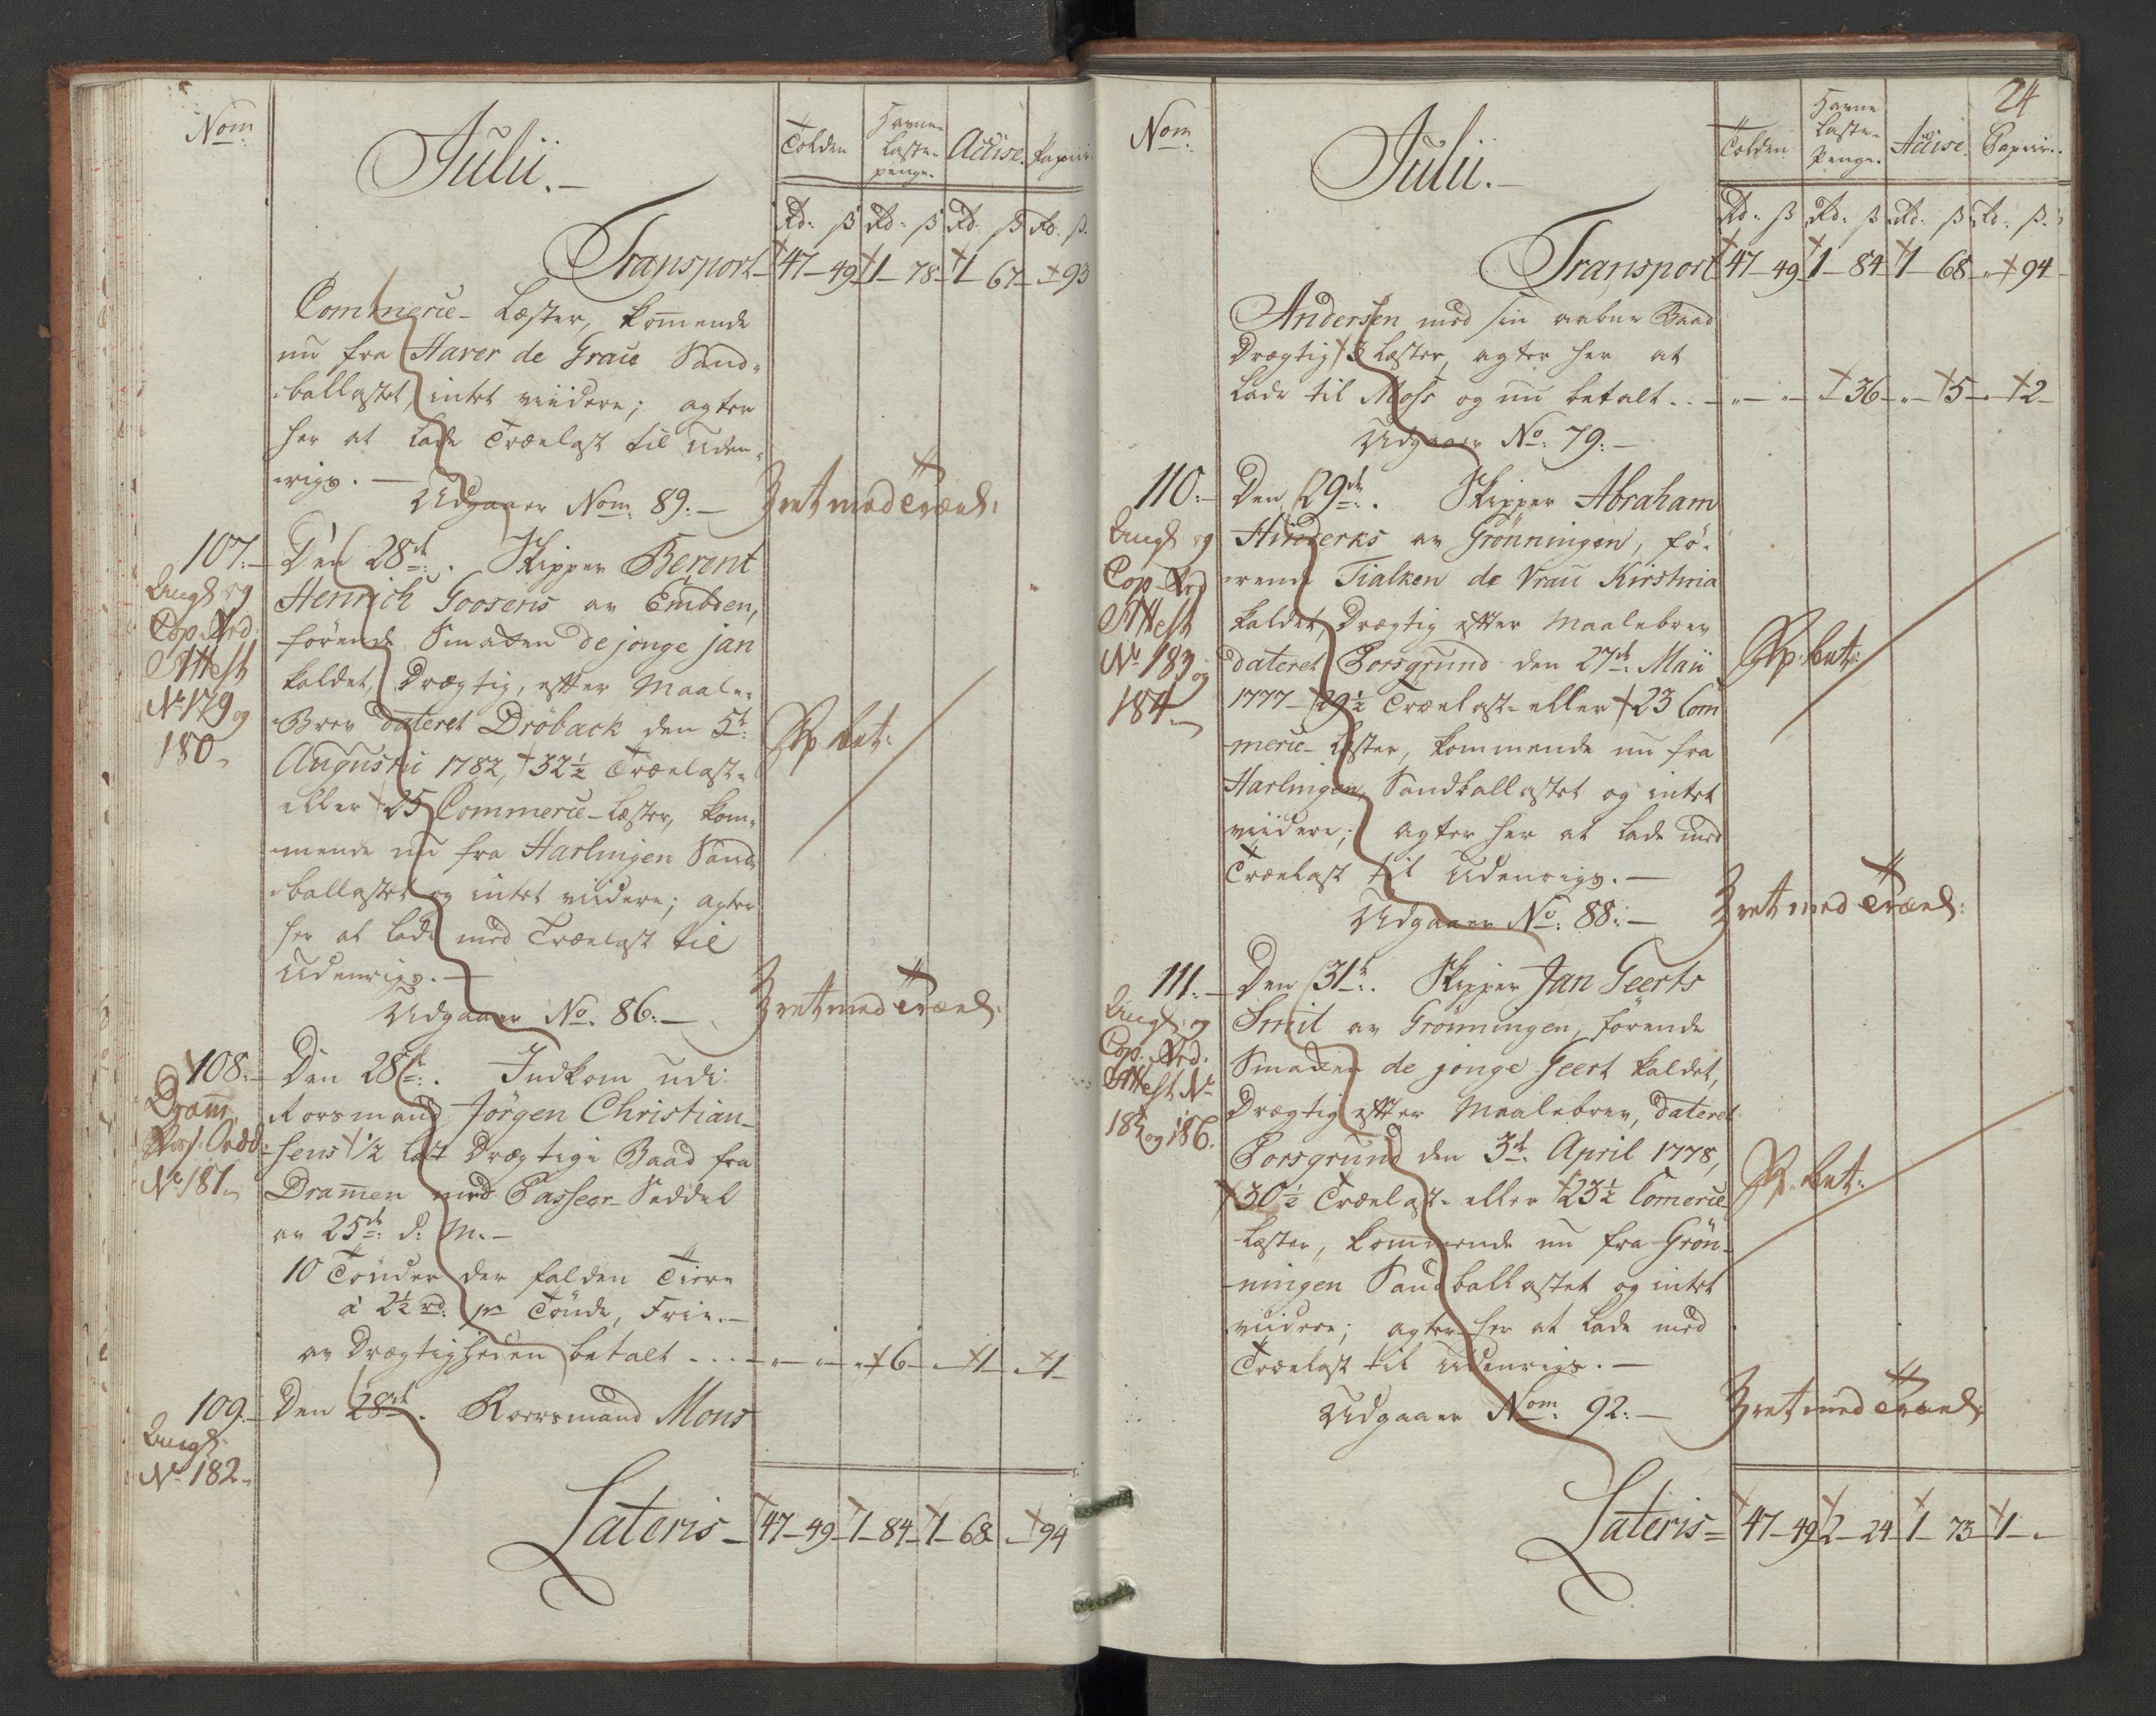 Nom
Julii.
Tolden
Havne-
Laste-
penge.
Acise.
Papiir.
Rd: ß Rd: ß Rd: ß Rd: ß.
Transport 47-49 1-78 1-67 - 93
Commerce-Læster, kom̄ende
nu fra Haver de Grace Sand-
ballastet, intet viidere; agter
her at lade Trælast til uden-
rigs.-
Udgaaer Nom: 89.-
107.-
Den 28de. Skipper Berent
Henrich Goosens av Embden,
förende Smakken de jonge Jan
kaldet, Drægtig, efter Maale-
Brev dateret Dröback den 5te
Augustii 1782, 32½ Trælast-
eller 25 Commerce-Læster, kom-
mende nu fra Harlingen Sand-
ballastet og intet viidere; agter
her at lade med Trælast til
Udenrigs.-
Udgaaer No. 86.-
og
Attest
No 179 og
180
108.-
Den 28de. Indkom udi
Rorsmand Jörgen Christian-
sens ½ Læst Drægtige Baad fra
Dram̄en med Passeer-Seddel
av 25de d: M.-
10 Tönder der falden Tiere
á 2½ rd. pr Tönde, Frie.-
av Drægtigheden betalt - - 6 - 1 - 1
Dram̄.
No 181
109.-
Den 28de. Roersmand Mons
No 182
Lateris - 47-49 1-84 1-68 - 94
24
Nom
Julii.
Tolden
Havne
Laste-
Penge.
Acise.
Papiir.
Rd: ß Rd: ß Rd: ß Rd: ß.
Transport 47-49 1-84 1-68 - 94
Andersen med sin aabne Baad
Drægtig 3 Læster, agter her at
lade til Moss og nu betalt - - 36 - 5 - 2
Udgaaer No: 79.-
110.-
Den 29de. Skipper Abraham
Hinderks av Grönningen, fö-
rende Tialken de Vrau Kirstina
kaldet, Drægtig efter Maalebrev
dateret Porsgrund den 27de Maii
1777 29½ Trælast- eller 23 Com
merce-Læster, kommende nu fra
Harlingen Sandballastet og intet
viidere; agter her at lade med
Trælast til Udenrigs.-
Udgaaer No: 88.-
og
Attest
No 183 og
184
111.-
Den 31te. Skipper Jan Geerts
Smit av Grönningen, förende
Smakken de jonge Geert kaldet,
Drægtig efter Maalebrev, dateret
Porsgrund den 3de April 1778,
30½ Trælast- eller 23½ Com̄erce
Læster, kommende nu fra Grön-
ningen Sandballastet og intet
viidere; agter her at lade med
Trælast til Udenrigs.-
Udgaaer Nom: 92.-
og
Attest No
185 og 186.
Lateris - 47-49 2-24 1-73 1 -